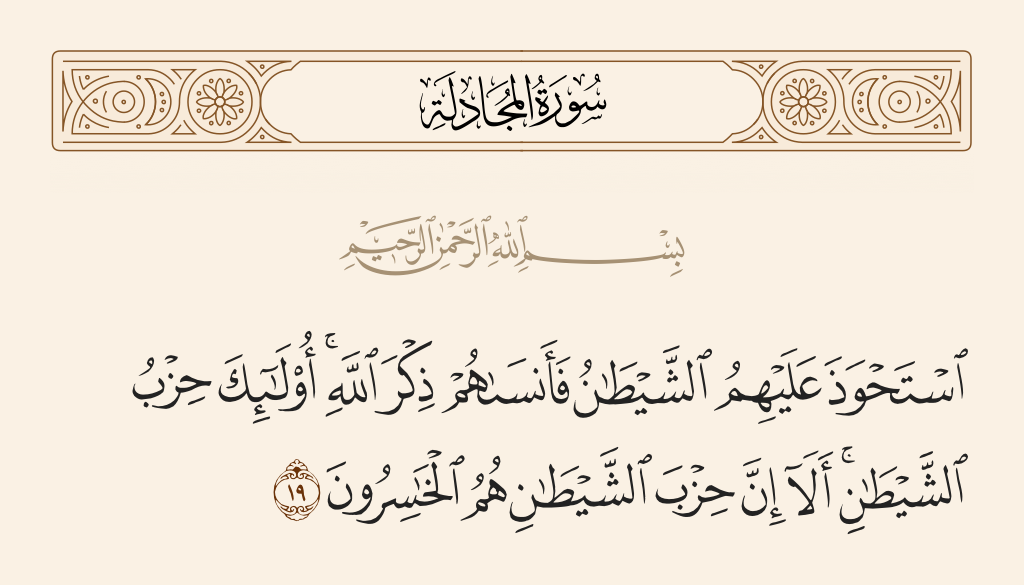 سُورَةُ المُجَادلَةِ
بِسْمِ ٱللَّهِ ٱلرَّحْمَٰنِ ٱلرَّحِيمِ
ٱسْتَحْوَذَ عَلَيْهِمُ ٱلشَّيْطَٰنُ فَأَنسَىٰهُمْ ذِكْرَ ٱللَّهِ ۚ أُو۟لَٰٓئِكَ حِزْبُ
ٱلشَّيْطَٰنِ ۚ أَلَآ إِنَّ حِزْبَ ٱلشَّيْطَٰنِ هُمُ ٱلْخَٰسِرُونَ ١٩